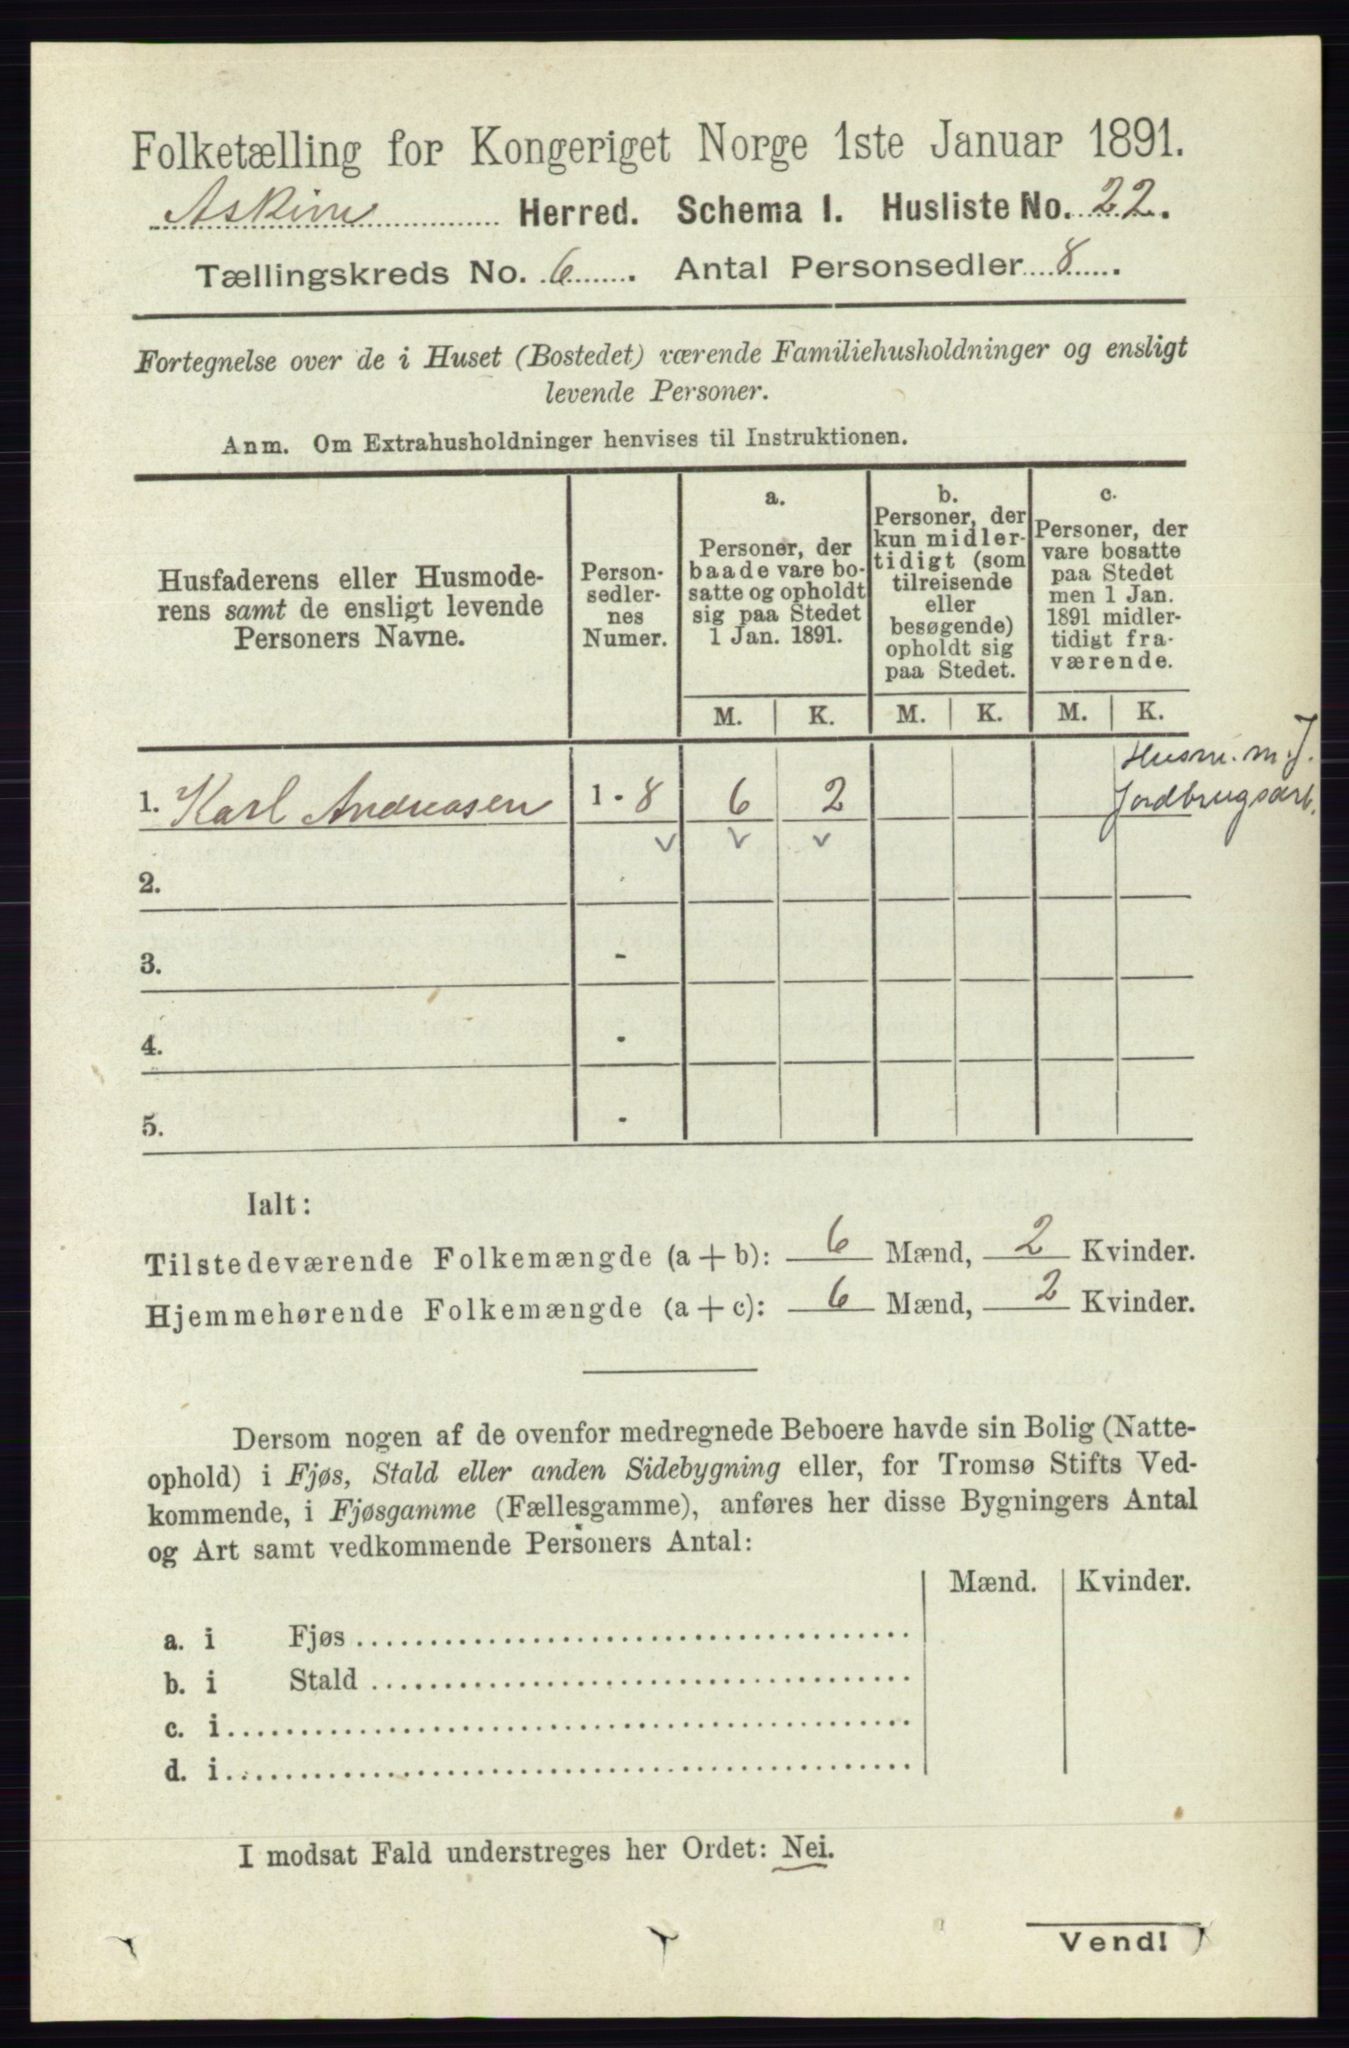 Folketælling for Kongeriget Norge 1ste Januar 1891.
Askim Herred. Schema I. Husliste No. 22.
Tællingskreds No. 6. Antal Personsedler 8.
Fortegnelse over de i Huset (Bostedet) værende Familiehusholdninger og ensligt
levende Personer.
Anm. Om Extrahusholdninger henvises til Instruktionen.
Husfaderens eller Husmode-
rens samt de ensligt levende
Personers Navne.
Person-
sedler-
nes
Numer.
a.
Personer, der
baade vare bo-
satte og opholdt
sig paa Stedet
1 Jan. 1891.
b.
Personer, der
kun midler-
tidigt (som
tilreisende
eller
besøgende)
opholdt sig
paa Stedet.
c.
Personer, der
vare bosatte
paa Stedet
men 1 Jan.
1891 midler-
tidigt fra-
værende.
M. K. M. K. M. K.
Husm. m. J.
Jordbrugsarb.
1. Karl Andreasen 1 - 8 6 2
2.
3. -
4. -
5. -
Ialt:
Tilstedeværende Folkemængde (a + b): 6 Mænd, 2 Kvinder.
Hjemmehørende Folkemængde (a + c): 6 Mænd, 2 Kvinder.
Dersom nogen af de ovenfor medregnede Beboere havde sin Bolig (Natte-
ophold) i Fjøs, Stald eller anden Sidebygning eller, for Tromsø Stifts Ved-
kommende, i Fjøsgamme (Fællesgamme), anføres her disse Bygningers Antal
og Art samt vedkommende Personers Antal:
Mænd. Kvinder.
a. i Fjøs
b. i Stald
c. i
d. i
I modsat Fald understreges her Ordet: Nei.
Vend!